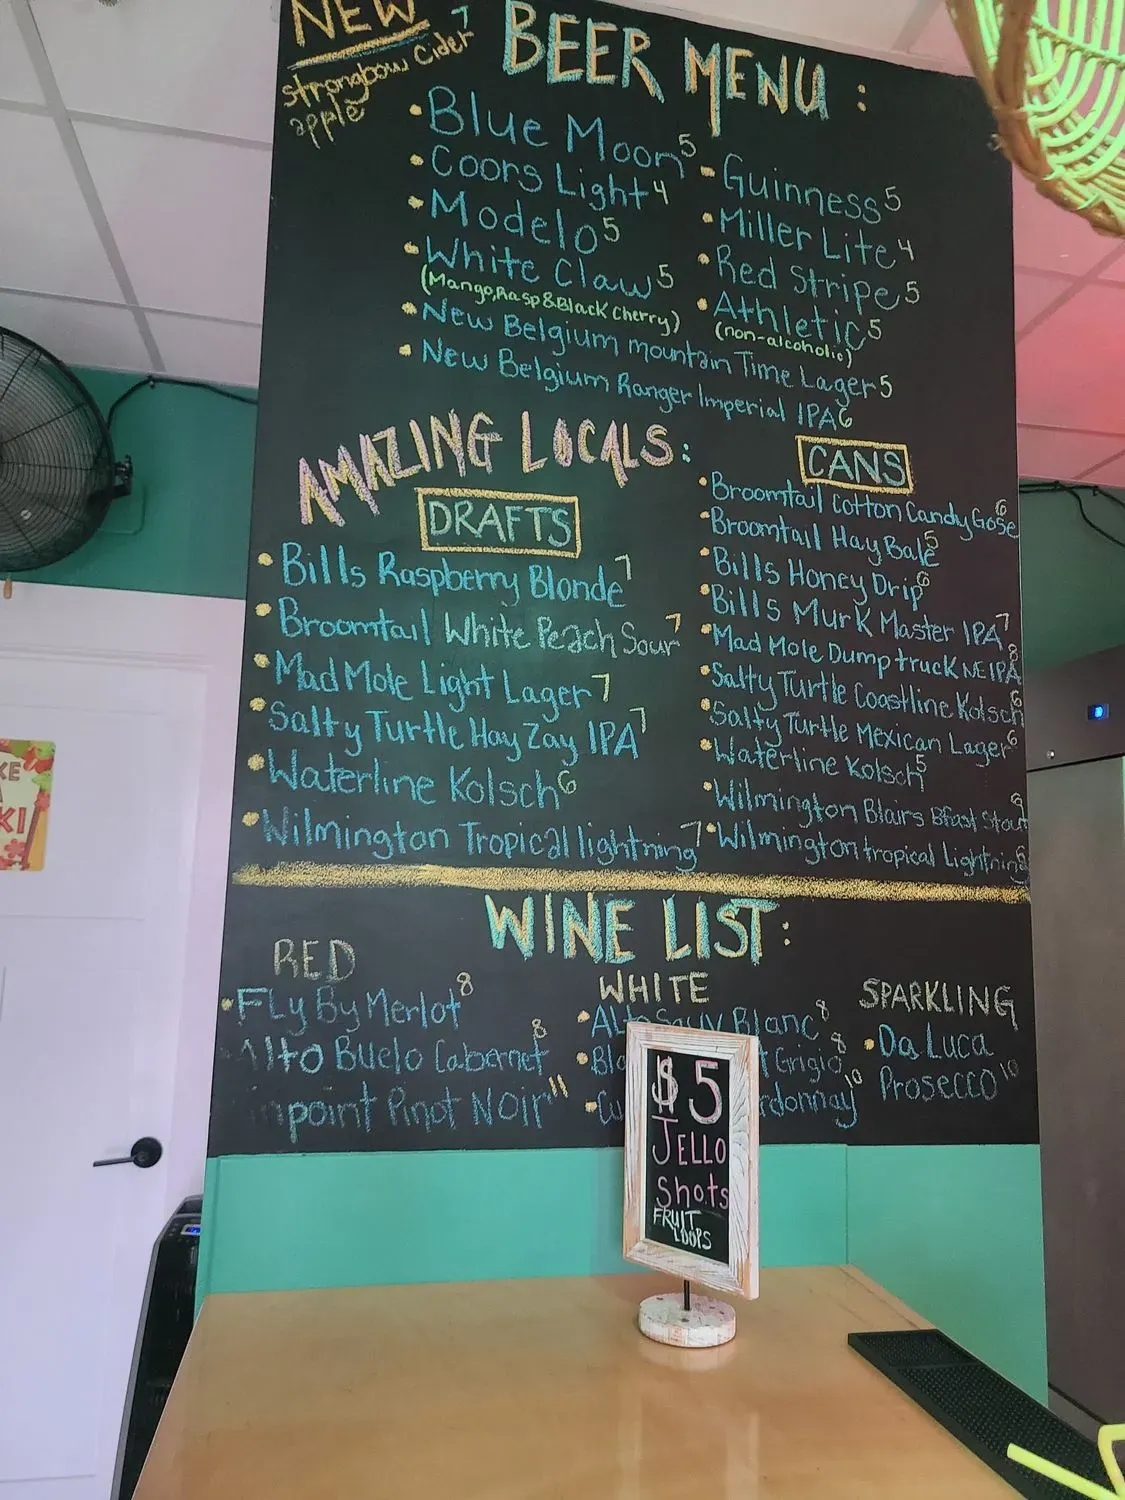 NEW 7
strongbow Cider
apple
BEER MENU :
Blue Moon 5
Coors Light 4
Modelo 5
White Claw 5
(Mango, Rasp & Black Cherry)
Guinness 5
Miller Lite 4
Red Stripe 5
Athletic 5
(non-alcoholic)
New Belgium mountain Time Lager 5
New Belgium Ranger Imperial IPA 6
AMAZING LOCALS:
DRAFTS
Bills Raspberry Blonde 7
Broomtail White Peach Sour 7
Mad Mole Light Lager 7
Salty Turtle Hay Zay IPA 7
Waterline Kolsch 6
Wilmington Tropical lightning 7
CANS
Broomtail Cotton Candy Gose 6
Broomtail Hay Bale 5
Bills Honey Drip 6
Bills Murk Master IPA 7
Mad Mole Dumptruck NEIPA 8
Salty Turtle Coastline Kolsch 6
Salty Turtle Mexican Lager 6
Waterline Kolsch 5
Wilmington Blairs Bfast Stout
Wilmington tropical Lightning 6
WINE LIST:
RED
Fly By Merlot 8
Alto Buelo Cabernet 8
inpoint Pinot Noir 11
WHITE
Alto Sauv Blanc 8
Grigio 8
rdonnay 10
SPARKLING
Da Luca
Prosecco 10
$5
JELLO
Shots
FRUIT
LOOPS